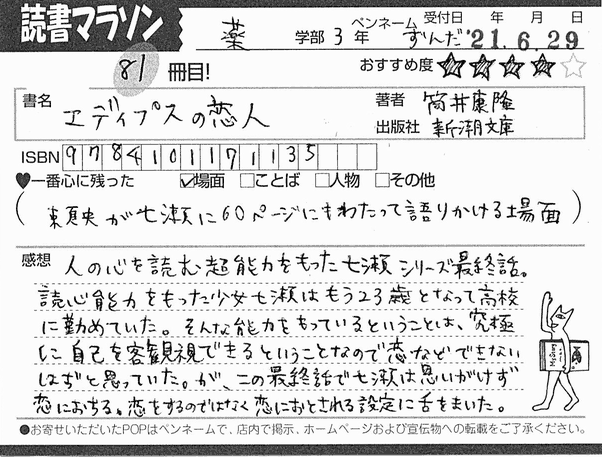 読書マラソン
薬 学部 3 年 ペンネーム ずんだ 受付日 年 月 日 '21.6.29
81 冊目!
おすすめ度 ★★★★☆
書名 エディプスの恋人
著者 筒井康隆
出版社 新潮文庫
ISBN 9784101171135
♥一番心に残った ☑場面 □ことば □人物 □その他
( 頼央が七瀬に60ページにもわたって語りかける場面 )
感想 人の心を読む超能力をもった七瀬シリーズ最終話。
読心能力をもった少女七瀬はもう23歳となって高校
に勤めていた。そんな能力をもっているということは、究極
に自己を客観視できるということなので恋などできない
はずと思っていた。が、この最終話で七瀬は思いがけず
恋におちる。恋をするのではなく恋におとされる設定に舌をまいた。
●お寄せいただいたPOPはペンネームで、店内で掲示、ホームページおよび宣伝物への転載をご了承ください。